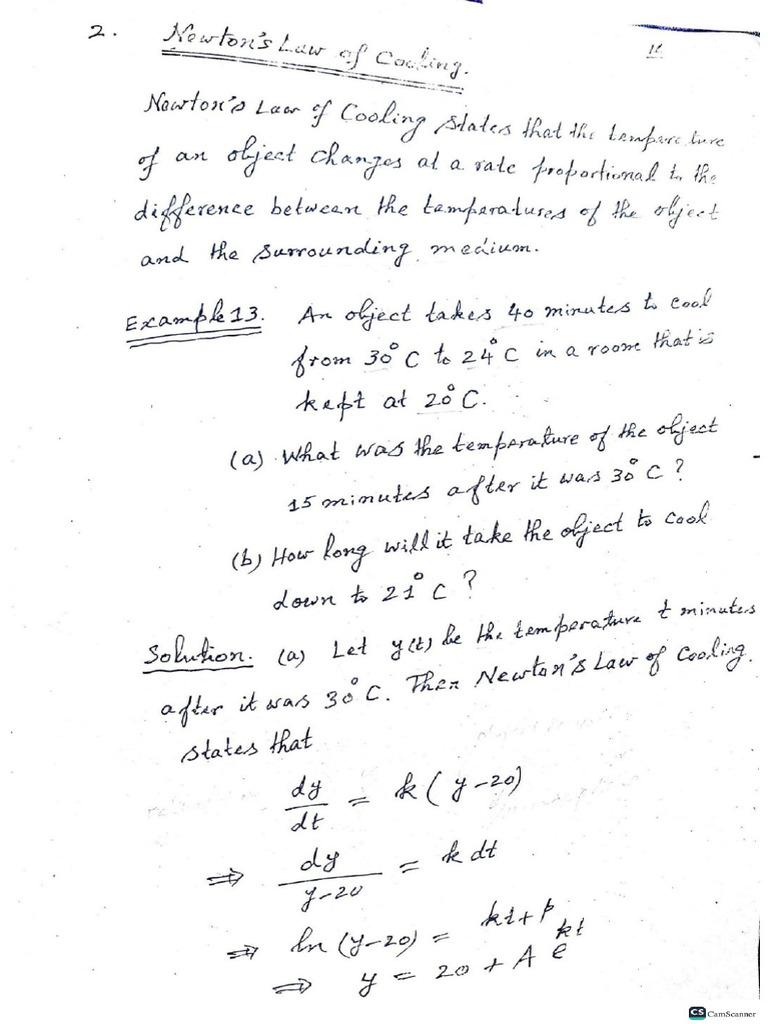 2. Newton's Law of Cooling.
16
Newton's Law of Cooling states that the temperature
of an object changes at a rate proportional to the
difference between the temperatures of the object
and the surrounding medium.
Example 13. An object takes 40 minutes to cool
from 30°C to 24°C in a room that is
kept at 20°C.
(a) What was the temperature of the object
15 minutes after it was 30°C?
(b) How long will it take the object to cool
down to 21°C?
Solution. (a) Let y(t) be the temperature t minutes
after it was 30°C. Then Newton's Law of Cooling
states that
dy/dt = k(y-20)
⇒ dy/y-20 = k dt
⇒ ln(y-20) = kt+p
⇒ y = 20 + A e^kt
CS CamScanner